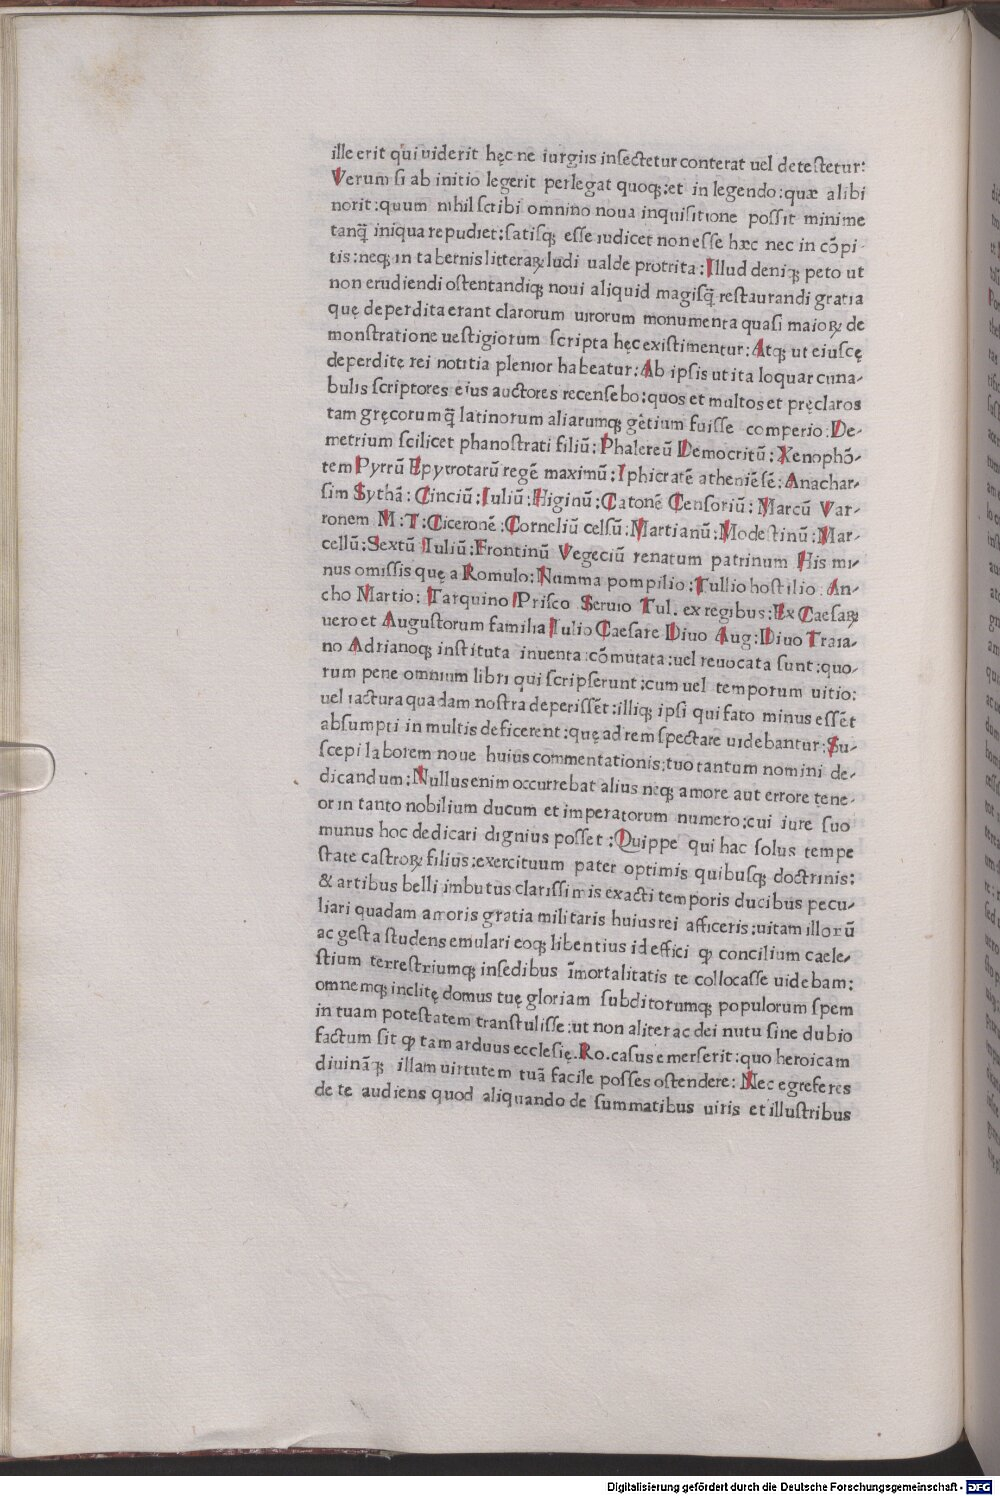 ille erit qui uiderit hęc ne iurgiis inſectetur conterat uel deteſtetur:
Verum ſi ab initio legerit perlegat quoq;:et in legendo:quæ alibi
norit:quum nihil ſcribi omnino noua inquiſitione poſſit minime
tanq̃ iniqua repudiet:ſatiſq; eſſe iudicet non eſſe hæc nec in cōpi-
tis:neq; in tabernis litteraꝝ ludi ualde protrita:Illud deniq; peto ut
non erudiendi oſtentandiq; noui aliquid magiſq̃ reſtaurandi gratia
quę deperdita erant clarorum uirorum monumenta quaſi maioꝝ de
monſtratione ueſtigiorum ſcripta hęc exiſtimentur:Atq; ut eiuſcę
deperditę rei notitia plenior habeatur:Ab ipſis ut ita loquar cuna-
bulis ſcriptores eius auctores recenſebo:quos et multos et pręclaros
tam gręcorum q̃ latinorum aliarumq; gētium fuiſſe comperio:De-
metrium ſcilicet phanoſtrati filiū:Phalereū Democritū:Xenophō-
tem Pyrrū Epyrotarū regē maximū:Iphicratē atheniēſē:Anachar-
ſim Sythā:Cinciū:Iuliū:Higinū:Catonē Cenſoriū:Marcū Var-
ronem M:T:Ciceronē:Corneliū celſū:Martianū:Modeſtinū:Mar-
cellū:Sextū Iuliū:Frontinū Vegeciū renatum patrinum His mi-
nus omiſſis quę a Romulo:Numma pompilio:Tullio hoſtilio:An-
cho Martio:Tarquino Priſco Seruio Tul. ex regibus:Ex Caeſaꝝ
uero et Auguſtorum familia Iulio Caeſare Diuo Aug:Diuo Traia-
no Adrianoq; inſtituta inuenta:cōmutata:uel reuocata ſunt:quo-
rum pene omnium libri qui ſcripſerunt:cum uel temporum uitio:
uel iactura quadam noſtra deperiſſēt:illiq; ipſi qui fato minus eſſēt
abſumpti in multis deficerent:quę ad rem ſpectare uidebantur:Su-
ſcepi laborem noue huius commentationis:tuo tantum nomini de-
dicandum:Nullus enim occurrebat alius neq; amore aut errore tene-
or in tanto nobilium ducum et imperatorum numero:cui iure ſuo
munus hoc dedicari dignius poſſet:Quippe qui hac ſolus tempe
ſtate caſtroꝝ filius:exercituum pater optimis quibuſq; doctrinis:
& artibus belli imbutus clariſſimis exacti temporis ducibus pecu-
liari quadam amoris gratia militaris huius rei afficeris:uitam illorū
ac geſta ſtudens emulari eoq; libentius id effici ꝙ concilium caele-
ſtium terreſtriumq; inſedibus īmortalitatis te collocaſſe uidebam:
omnemq; inclitę domus tuę gloriam ſubditorumq; populorum ſpem
in tuam poteſtatem tranſtuliſſe:ut non aliter ac dei nutu ſine dubio
factum ſit ꝙ tam arduus eccleſię.Ro.caſus emerſerit:quo heroicam
diuināq; illam uirtutem tuā facile poſſes oſtendere:Nec egre feres
de te audiens quod aliquando de ſummatibus uiris et illuſtribus
Digitalisierung gefördert durch die Deutsche Forschungsgemeinschaft - DFG